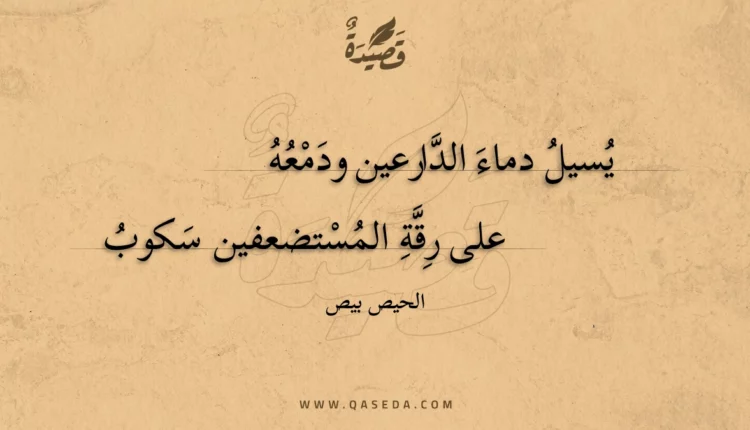 قَصِيدَةٌ
يُسيلُ دماءَ الدَّارعين ودَمْعُهُ
على رِقَّةِ المُسْتضعفين سَكوبُ
الحيص بيص
WWW.QASEDA.COM